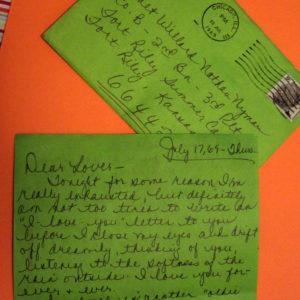 Willard Nathan Nyman
Co B - 2nd Bn - 3rd
Fort Riley Summer
Fort Riley, Kansas
6644
CHICAGO, ILL.
PM
1969
July 17, 69 - Thurs.
Dear Lover -
Tonight for some reason I'm
really exhausted, but definitely
am not too tired to write an
"I-love-you" letter to you
before I close my eyes and drift
off dreamily, thinking of you,
listening to the softness of the
rain outside. I love you for-
ever & ever.
another